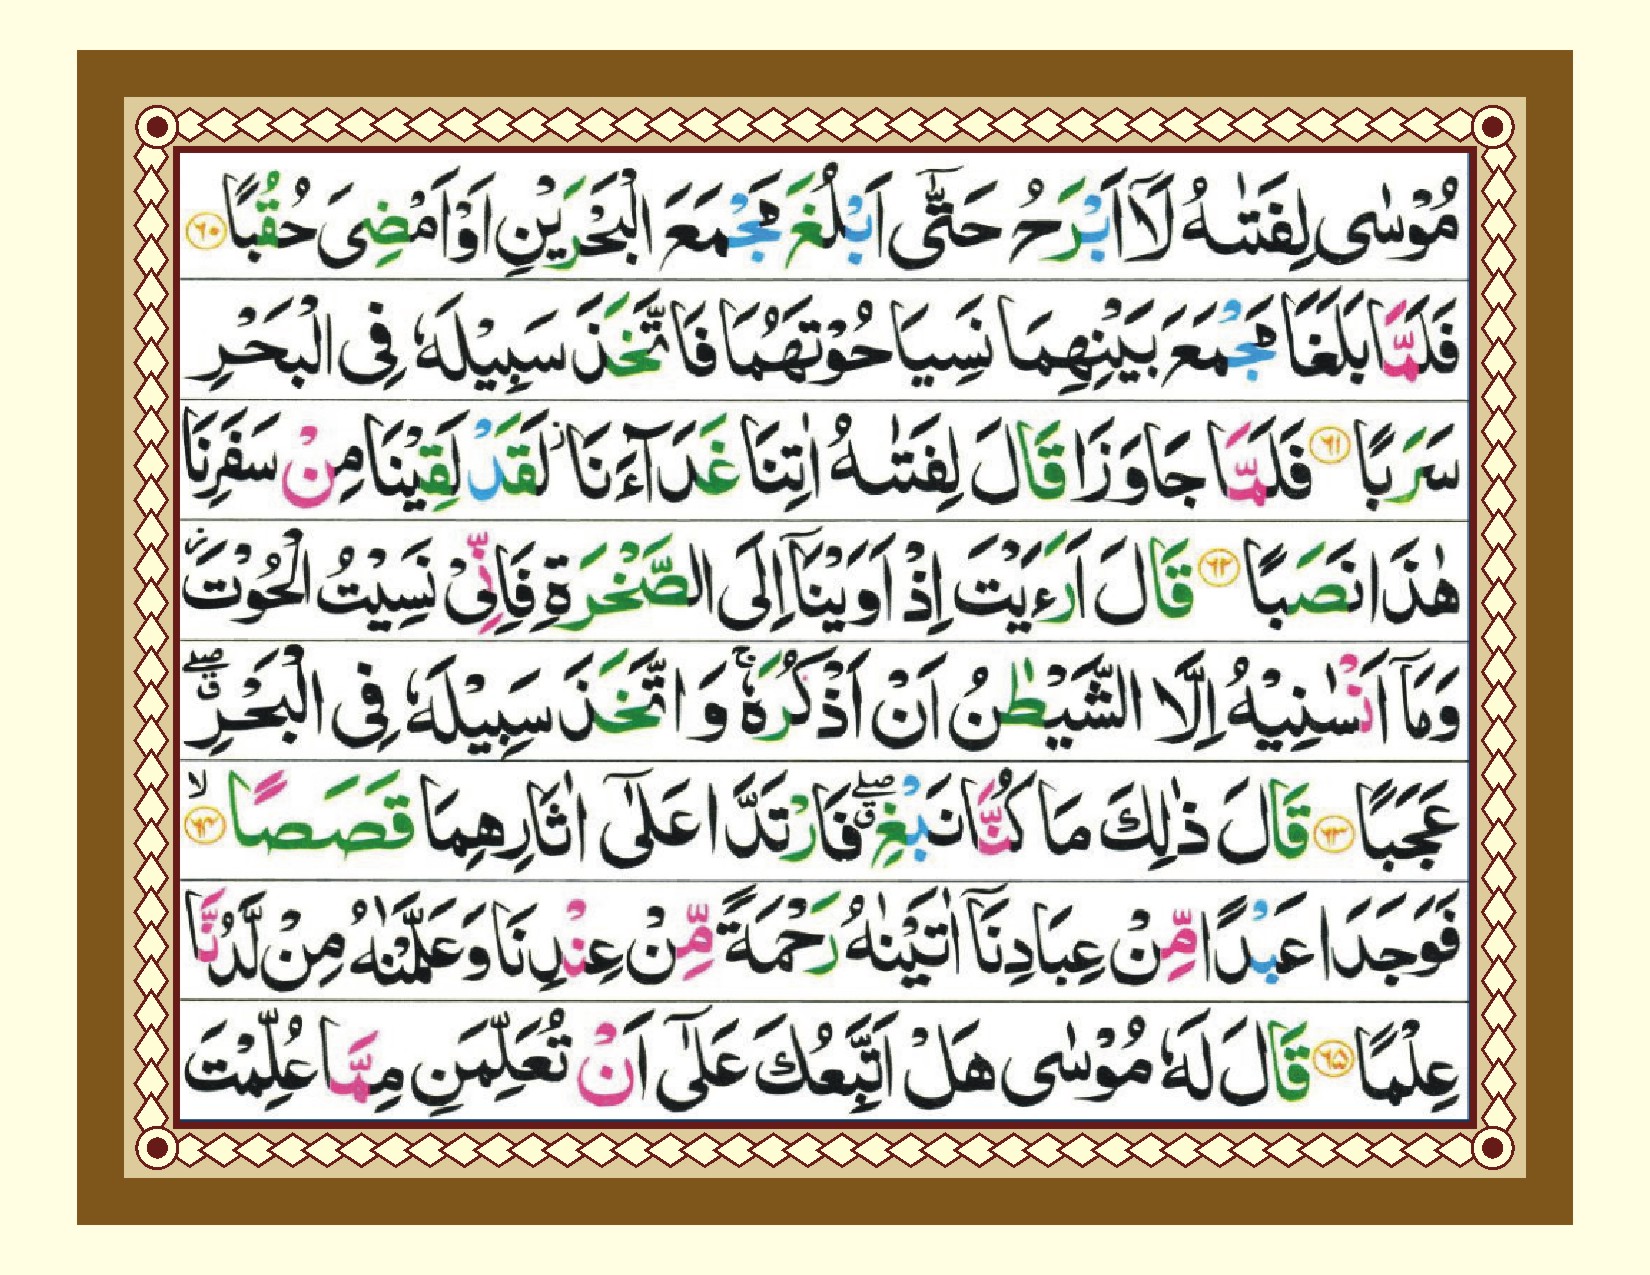 مُوْسٰى لِفَتٰىهُ لَاۤ اَبْرَحُ حَتّٰۤى اَبْلُغَ مَجْمَعَ الْبَحْرَيْنِ اَوْ اَمْضِىَ حُقُبًا ﴿٦٠﴾
فَلَمَّا بَلَغَا مَجْمَعَ بَيْنِهِمَا نَسِيَا حُوْتَهُمَا فَاتَّخَذَ سَبِيْلَهٗ فِى الْبَحْرِ
سَرَبًا ﴿٦١﴾ فَلَمَّا جَاوَزَا قَالَ لِفَتٰىهُ اٰتِنَا غَدَآءَنَا ز لَقَدْ لَقِيْنَا مِنْ سَفَرِنَا
هٰذَا نَصَبًا ﴿٦٢﴾ قَالَ اَرَءَيْتَ اِذْ اَوَيْنَاۤ اِلَى الصَّخْرَةِ فَاِنِّىْ نَسِيْتُ الْحُوْتَ ز
وَمَاۤ اَنْسٰنِيْهُ اِلَّا الشَّيْطٰنُ اَنْ اَذْكُرَهٗ ج وَ اتَّخَذَ سَبِيْلَهٗ فِى الْبَحْرِ صلے ق
عَجَبًا ﴿٦٣﴾ قَالَ ذٰلِكَ مَا كُنَّا نَبْغِ صلے ق فَارْتَدَّا عَلٰۤى اٰثَارِهِمَا قَصَصًا لا ﴿٦٤﴾
فَوَجَدَا عَبْدًا مِّنْ عِبَادِنَاۤ اٰتَيْنٰهُ رَحْمَةً مِّنْ عِنْدِنَا وَعَلَّمْنٰهُ مِنْ لَّدُنَّا
عِلْمًا ﴿٦٥﴾ قَالَ لَهٗ مُوْسٰى هَلْ اَتَّبِعُكَ عَلٰۤى اَنْ تُعَلِّمَنِ مِمَّا عُلِّمْتَ